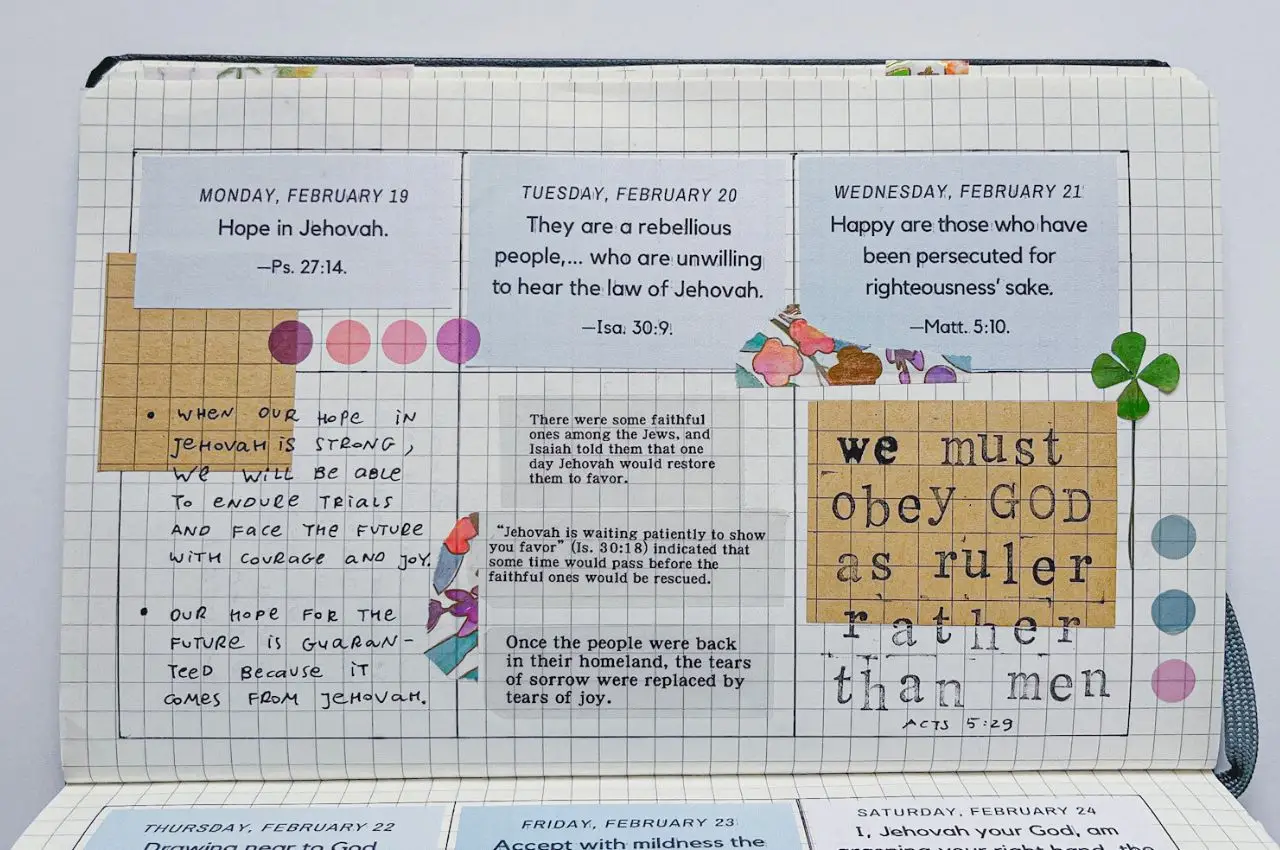 MONDAY, FEBRUARY 19
Hope in Jehovah.
—Ps. 27:14.
• WHEN OUR HOPE IN
JEHOVAH IS STRONG,
WE WILL BE ABLE
TO ENDURE TRIALS
AND FACE THE FUTURE
WITH COURAGE AND JOY.
• OUR HOPE FOR THE
FUTURE IS GUARAN-
TEED BECAUSE IT
COMES FROM JEHOVAH.
TUESDAY, FEBRUARY 20
They are a rebellious
people,... who are unwilling
to hear the law of Jehovah.
—Isa. 30:9.
There were some faithful
ones among the Jews, and
Isaiah told them that one
day Jehovah would restore
them to favor.
“Jehovah is waiting patiently to show
you favor” (Is. 30:18) indicated that
some time would pass before the
faithful ones would be rescued.
Once the people were back
in their homeland, the tears
of sorrow were replaced by
tears of joy.
WEDNESDAY, FEBRUARY 21
Happy are those who have
been persecuted for
righteousness’ sake.
—Matt. 5:10.
we must
obey GOD
as ruler
rather
than men
ACTS 5:29
THURSDAY, FEBRUARY 22
Drawing near to God
FRIDAY, FEBRUARY 23
Accept with mildness the
SATURDAY, FEBRUARY 24
I, Jehovah your God, am
grasping your right hand, the